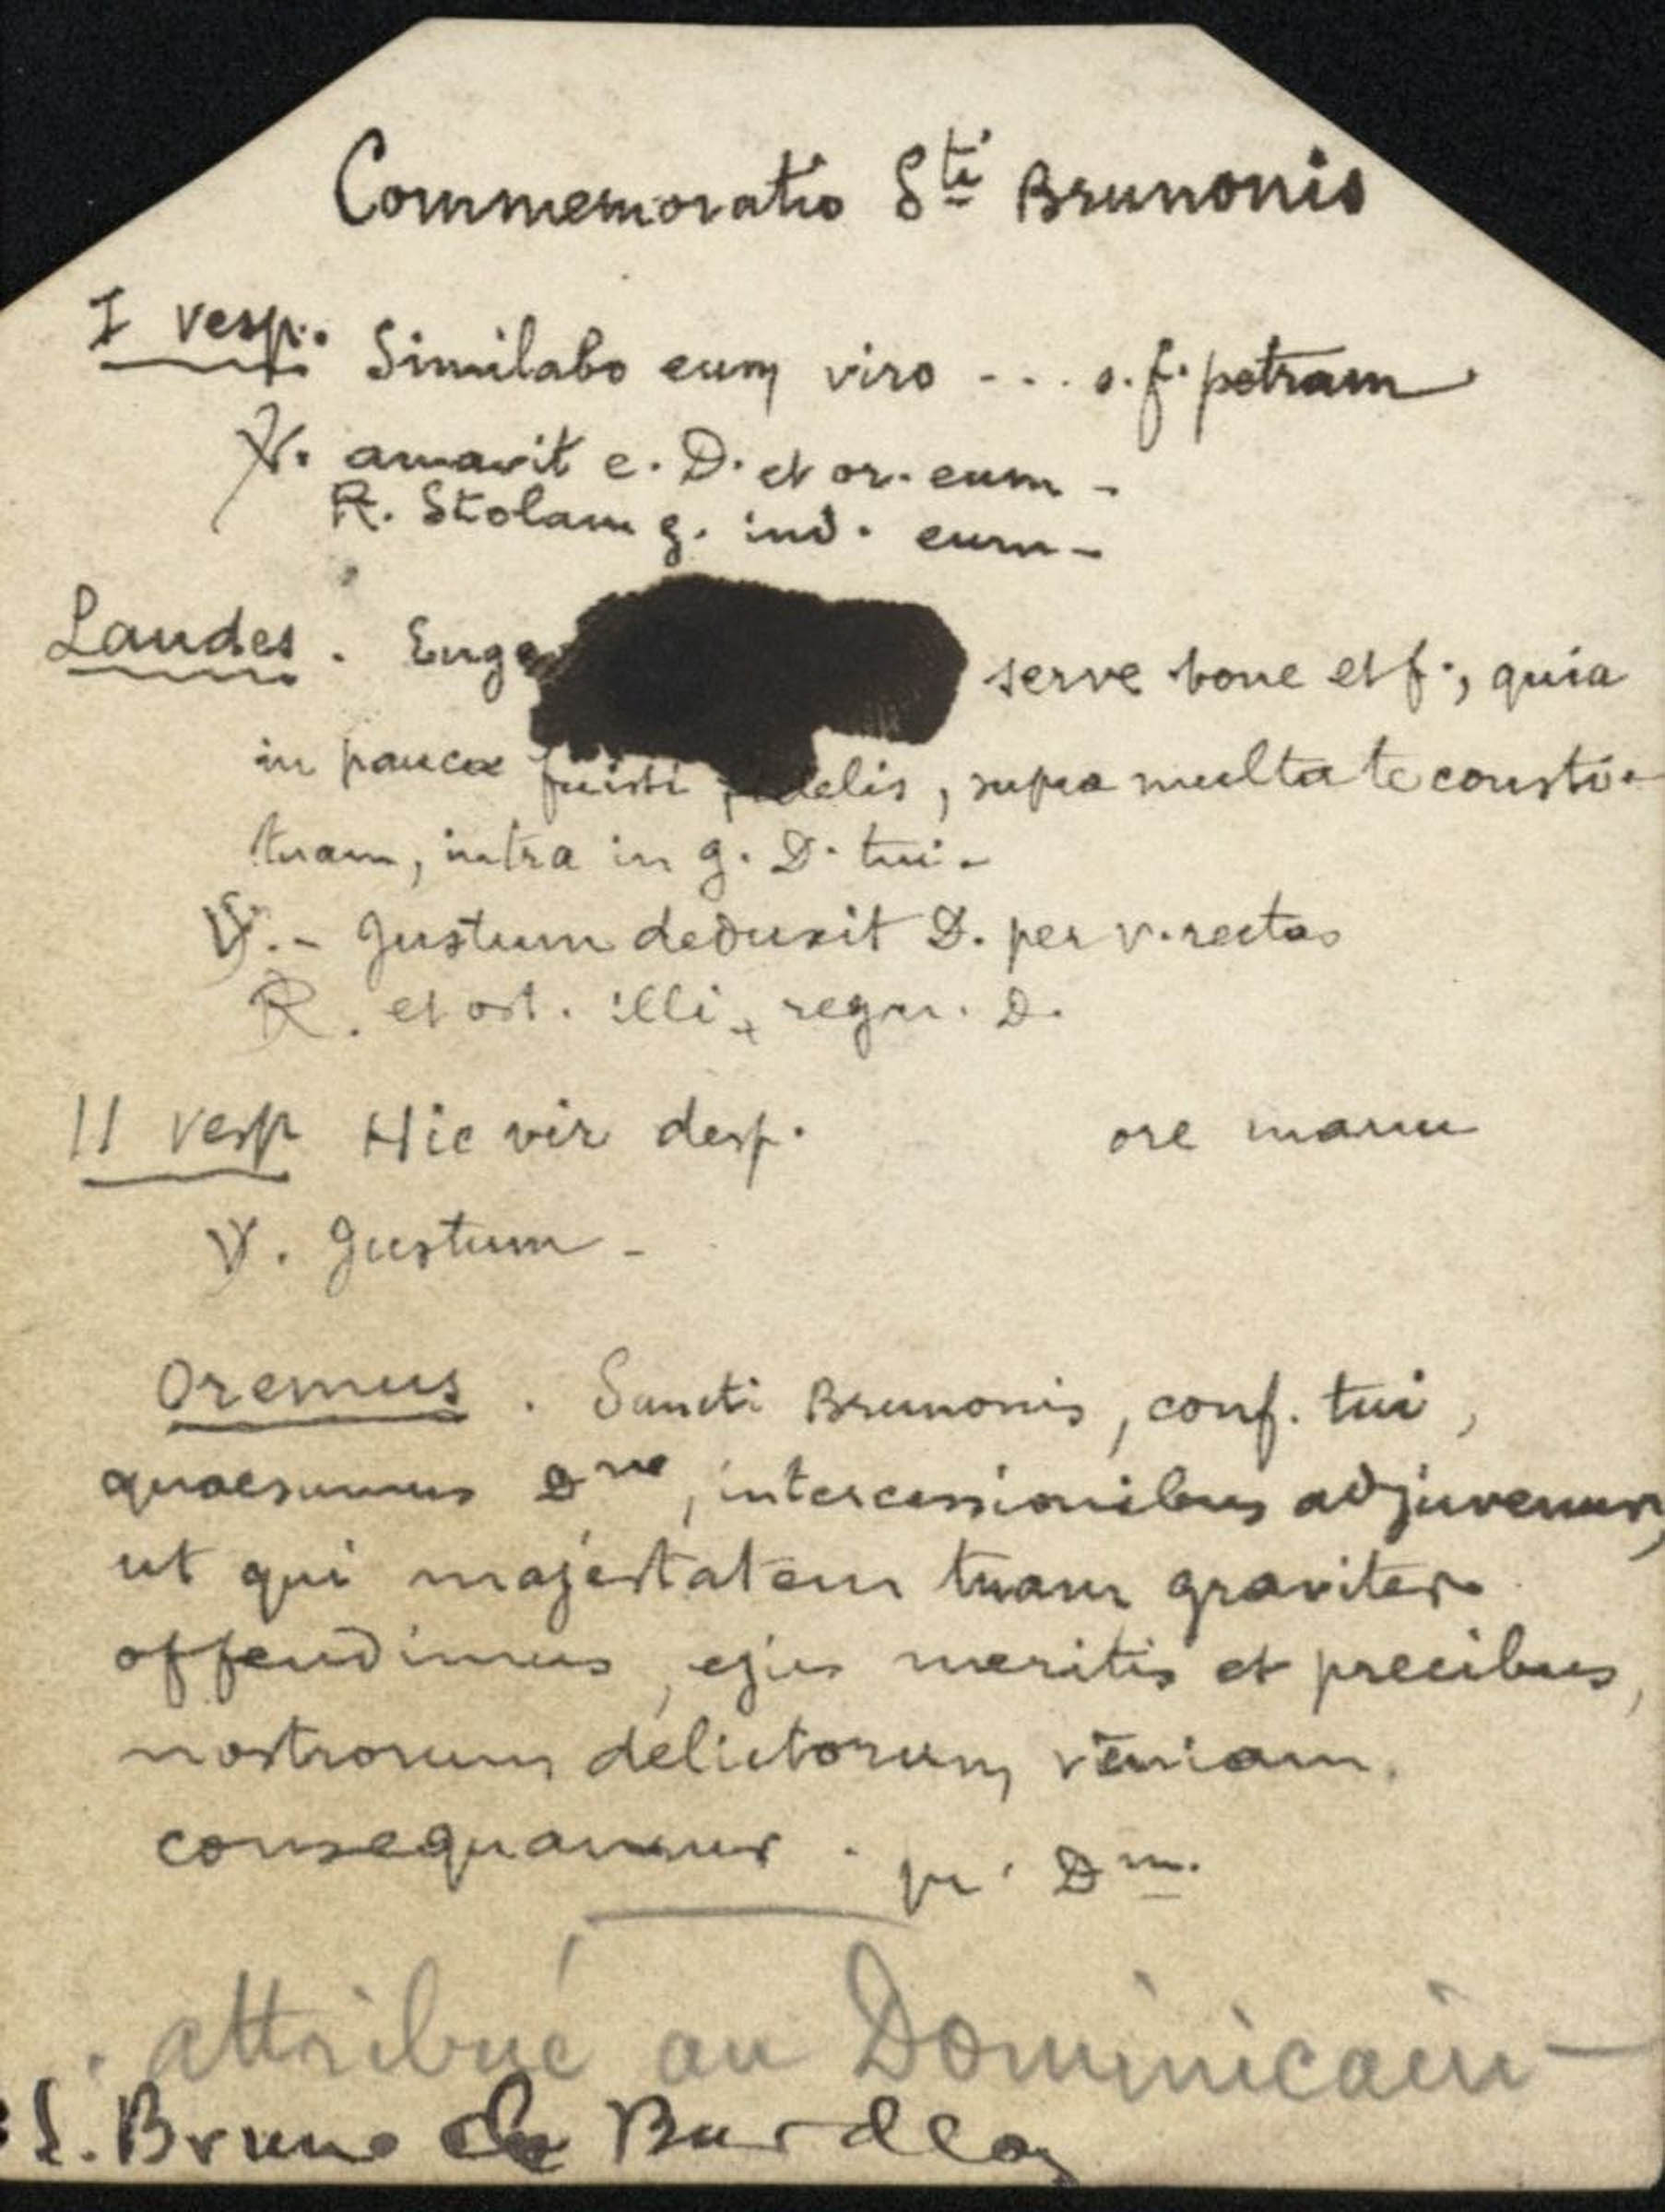 Commemoratio Sti Brunonis
I vesp. Similabo eum viro - . . . s. f. petram
℣. amavit e. D. et or. eum -
R. Stolam g. ind. eum -
Laudes. Euge serve bone et f., quia
in pauca fuisti fidelis, supra multa te consti-
tuam, intra in g. D. tui -
℣. - Justum deduxit D. per v. rectas
R. et ost. illi regn. D.
II vesp Hic vir desp. ore manu
℣. Justum -
Oremus. Sancti Brunonis, conf. tui,
quaesumus Dne, intercessionibus adjuvemur,
ut qui majestatem tuam graviter
offendimus, ejus meritis et precibus,
nostrorum delictorum veniam
consequamur. pr. Dm.
attribué au Dominicain -
S. Bruno